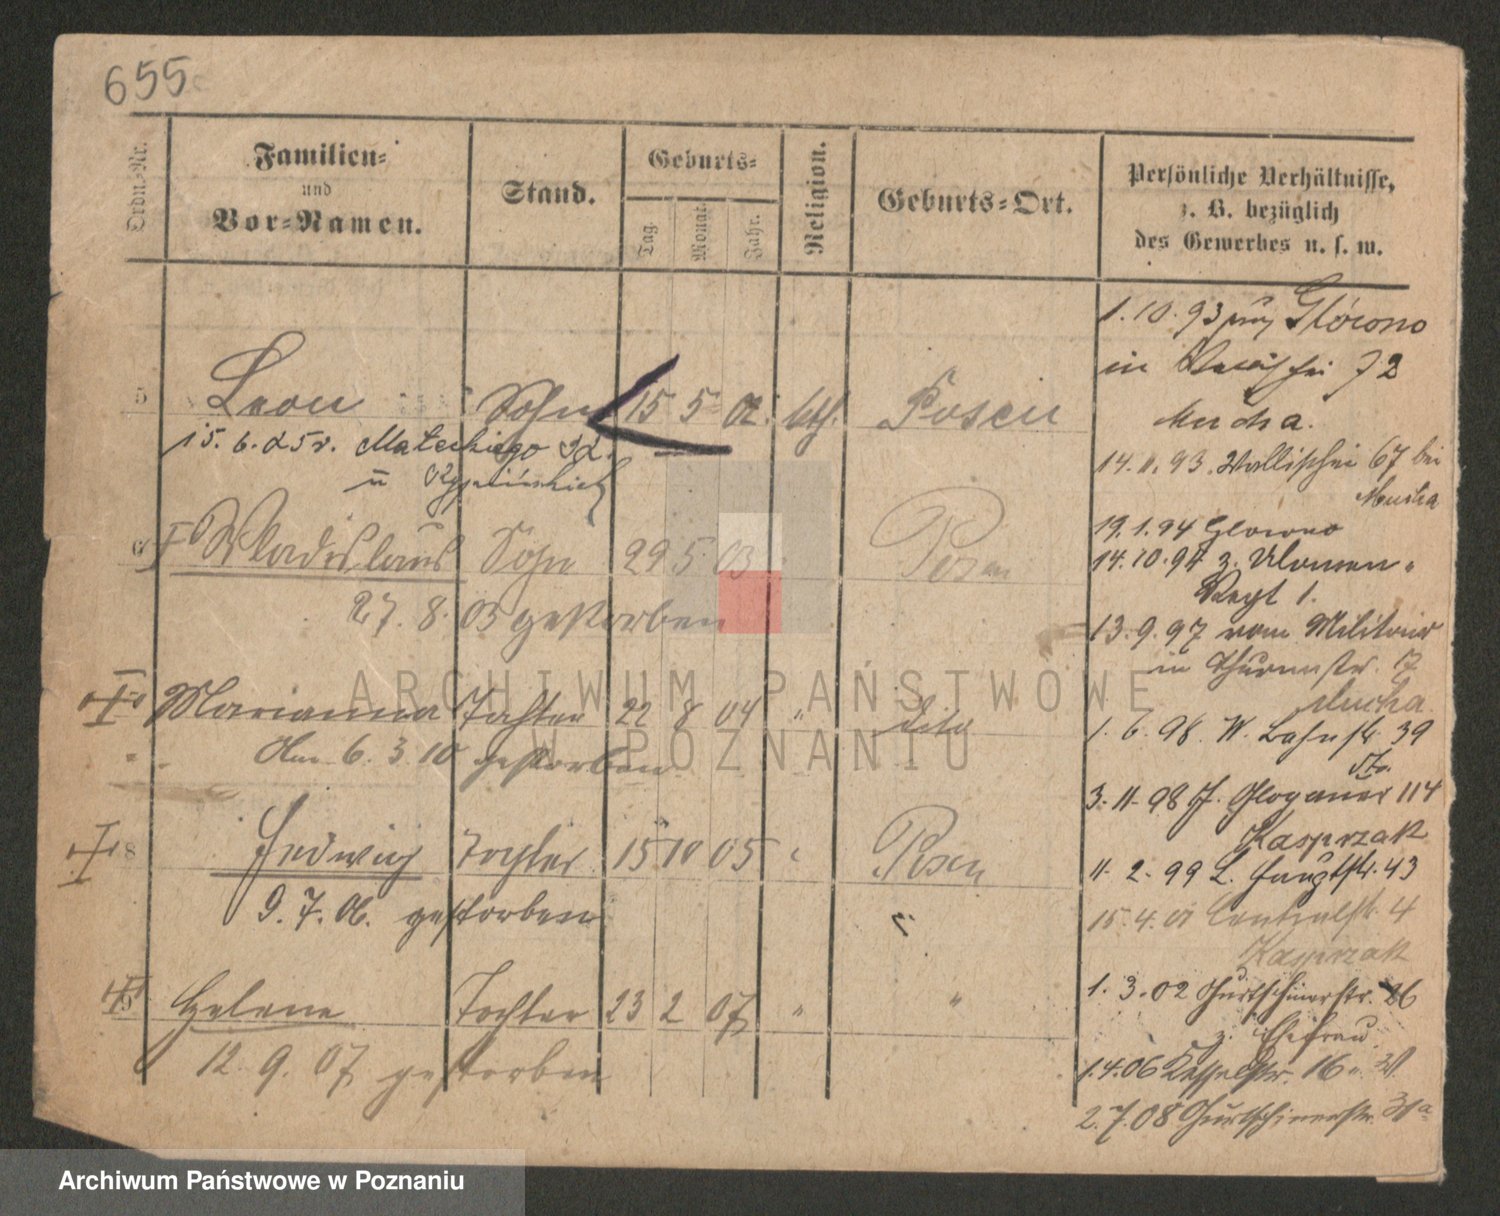 655
Ordn.-Nr.
Familien-
und
Vor-Namen.
Stand.
Geburts-
Tag.
Monat.
Jahr.
Religion.
Geburts-Ort.
Persönliche Verhältnisse,
z. B. bezüglich
des Gewerbes u. s. w.
5 Leon Sohn 15 5 02. kth. Posen
15. 6. 25 v. Mateckiego
6 Wladislaus Sohn 29 5 03 Posen
27. 8. 03 gestorben
Marianna Tochter 22 8 04 " dito
Am 6. 3. 10 gestorben
8 Hedwig Tochter 15 10 05 Posen
9. 7. 06. gestorben
9 Helene Tochter 23 2 07 " "
12. 9. 07 gestorben
1. 10. 93 Glówno
in 72
Mucha.
14. 11. 93. Wallischei 67 bei
Mucha
19. 1. 94 Glowno
14. 10. 94 z. Ulanen-
Regt 1.
13. 9. 97 vom Militair
in Thurmstr. 17
Mucha.
1. 6. 98. W. Bahnstr. 39
3. 11. 98 J. Glogauer 114
Kasprzak
11. 2. 99 L. Hauptstr. 43
15. 4. 01 Centralstr. 4
Kasprzak
1. 3. 02 Gurtschinerstr. 26
z. Ehefrau
1. 4. 06 Kesselstr. 16
2. 7. 08 Gurtschinerstr.
ARCHIWUM PAŃSTWOWE
W POZNANIU
Archiwum Państwowe w Poznaniu